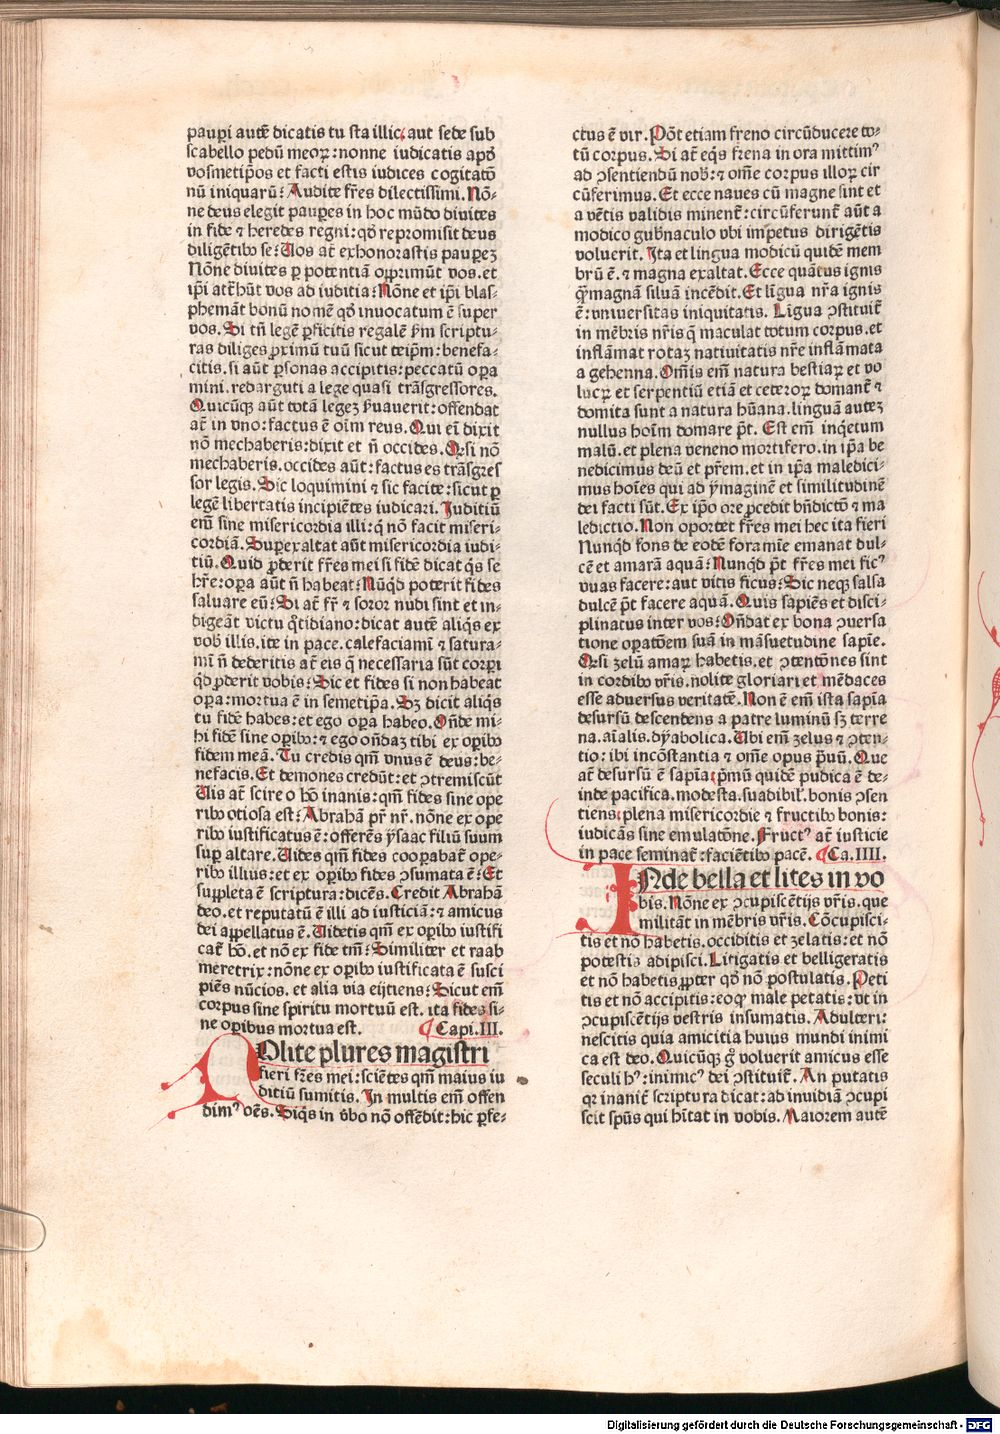 paup̄i autē dicatis tu sta illic. aut sede sub
scabello pedū meoꝝ: nonne iudicatis apđ
vosmetip̄os et facti estis iudices cogitatō
nū iniquarū? Audite fr̄es dilectissimi. Nō-
ne deus elegit paup̱es in hoc mūdo diuites
in fide ⁊ heredes regni: qđ repromisit deus
diligētibꝰ se? Uos at̄ exhonorastis paup̱eꝫ
Nōne diuites ꝑ potentiā opp̱rimūt vos. et
ip̄i at̄hūt vos ad iuditia? Nōne et ip̄i blas-
phemāt bonū nomē qđ inuocatum ē super
vos. Si tn̄ legē ꝑficitis regalē ẜm scriptu-
ras diliges ꝓximū tuū sicut teip̄m: benefa-
citis. si aūt ꝑsonas accipitis: peccatū opa
mini. redarguti a lege quasi trāsgressores.
Quicūqꝫ aūt totā legeꝫ ẜuauerit: offendat
at̄ in vno: factus ē oīm reus. Qui eī dixit
nō mechaberis: dixit et n̄ occides. Qꝛsi nō
mechaberis. occides aūt: factus es trāsgres
sor legis. Sic loquimini ⁊ sic facite: sicut ꝑ
legē libertatis incipiētes iudicari. Juditiū
em̄ sine misericordia illi: q̄ nō facit miseri-
cordiā. Supexaltat aūt misericordia iudi-
tiū. Quid ꝓderit fr̄es mei si fidē dicat qͥs se
hr̄e: opa aūt n̄ habeat? Nūqͥd poterit fides
saluare eū? Si at̄ fr̄ ⁊ soror nudi sint et in-
digeāt victu q̄tidiano: dicat autē aliqͥs ex
vobꝭ illis. ite in pace. calefaciamī ⁊ satura-
mī n̄ dederitis at̄ eis q̄ necessaria sūt corp̱i
qͥd ꝓderit vobis? Sic et fides si non habeat
opa: mortua ē in semetip̄a. Sꝫ dicit aliqͥs
tu fidē habes: et ego opa habeo. Oñde mi-
hi fidē sine op̱ibꝰ: ⁊ ego oñdaꝫ tibi ex op̱ibꝰ
fidem meā. Tu credis qm̄ vnus ē deus: be-
nefacis. Et demones credūt: et ꝯtremiscūt
Uis at̄ scire o hō inanis: qm̄ fides sine ope
ribꝰ otiosa est? Abrahā pr̄ nr̄. nōne ex ope
ribꝰ iustificatus ē: offerēs ysaac filiū suum
sup altare. Uides qm̄ fides coopabat̄ ope-
ribꝰ illius: et ex op̱ibꝰ fides ꝯsumata ē? Et
suppleta ē scriptura: dicēs. Credit Abrahā
deo. et reputatū ē illi ad iusticiā: ⁊ amicus
dei appellatus ē. Uidetis qm̄ ex op̱ibꝰ iustifi
cat̄ hō. et nō ex fide tm̄? Similiter et raab
meretrix: nōne ex op̱ibꝰ iustificata ē susci
piēs nūcios. et alia via eijtiens? Sicut em̄
corpus sine spiritu mortuū est. ita fides si-
ne opibus mortua est. Capi. III.
NOlite plures magistri
fieri fr̄es mei: sciētes qm̄ maius iu
ditiū sumitis. In multis em̄ offen
dimꝰ oēs. Siqͥs in v̄bo nō offēdit: hic ꝑfe-
ctus ē vir. Pōt etiam freno circūducere to-
tū corpus. Si at̄ eqͥs frena in ora mittimꝰ
ad ꝯsentiendū nobꝭ: ⁊ om̄e corpus illoꝝ cir
cūferimus. Et ecce naues cū magne sint et
a vētis validis minent̄: circūferunt̄ aūt a
modico gub̄naculo vbi impetus dirigētis
voluerit. Ita et lingua modicū quidē mem
brū ē. ⁊ magna exaltat. Ecce quātus ignis
q̄ magnā siluā incēdit. Et līgua nr̄a ignis
ē: vniuersitas iniquitatis. Līgua ꝯstituit̄
in mēbris nr̄is q̄ maculat totum corpus. et
inflāmat rotaꝫ natiuitatis nr̄e inflāmata
a gehenna. Om̄is em̄ natura bestiaꝝ et vo
lucꝝ et serpentiū etiā et ceteroꝝ domant̄ ⁊
domita sunt a natura hūana. linguā auteꝫ
nullus hoīm domare p̄t. Est em̄ inq̇etum
malū. et plena veneno mortifero. in ip̄a be
nedicimus deū et pr̄em. et in ip̄a maledici-
mus hoīes qui ad ymaginē et similitudinē
dei facti sūt. Ex ip̄o ore ꝓcedit bn̄dictō ⁊ ma
ledictio. Non oportet fr̄es mei hec ita fieri
Nunqͥd fons de eodē foramīe emanat dul-
cē et amarā aquā? Nunqͥd p̄t fr̄es mei ficꝰ
vuas facere: aut vitis ficus? Sic neqꝫ salsa
dulcē p̄t facere aquā. Quis sapiēs et disci-
plinatus inter vos? Oñdat ex bona ꝯuersa
tione opatōem suā in māsuetudine sapīe.
Qꝛsi zelū amaꝝ habetis. et ꝯtentōnes sint
in cordibꝰ vr̄is. nolite gloriari et mēdaces
esse aduersus veritatē. Non ē em̄ ista sapīa
desursū descendens a patre luminū sꝫ terre
na. aīalis. dyabolica. Ubi em̄ zelus ⁊ ꝯten-
tio: ibi incōstantia ⁊ om̄e opus p̄uū. Que
at̄ desursū ē sapīa. p̄mū quidē pudica ē de-
inde pacifica. modesta. suadibil'. bonis ꝯsen
tiens. plena misericordie ⁊ fructibꝰ bonis:
iudicās sine emulatōne. Fructꝰ at̄ iusticie
in pace seminat̄: faciētibꝰ pacē. Ca. IIII.
INde bella et lites in vo
bis. Nōne ex ꝯcupiscētijs vr̄is. que
militāt in mēbris vr̄is. Cōcupisci-
tis et nō habetis. occiditis et zelatis: et nō
potestis adipisci. Litigatis et belligeratis
et nō habetis ꝓpter qđ nō postulatis. Peti
tis et nō accipitis: eoqͫ male petatis: vt in
ꝯcupiscētijs vestris insumatis. Adulteri:
nescitis quia amicitia huius mundi inimi
ca est deo. Quicūqꝫ gͦ voluerit amicus esse
seculi hꝰ: inimicꝰ dei ꝯstituit̄. An putatis
qꝛ inanit̄ scriptura dicat: ad inuidiā ꝯcupi
scit sp̄us qui hītat in vobis. Maiorem autē
Digitalisierung gefördert durch die Deutsche Forschungsgemeinschaft - DFG